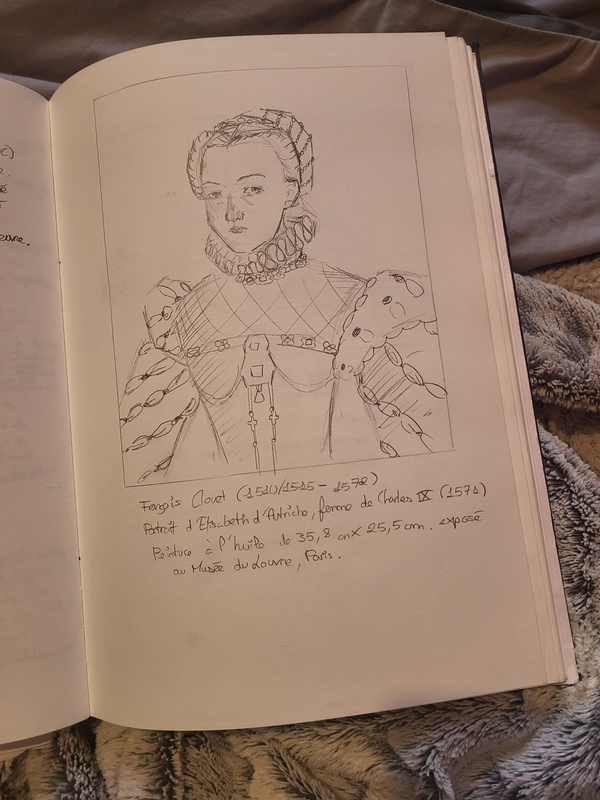 e)
euvre.
François Clouet (1510/1515 - 1572)
Portrait d'Elisabeth d'Autriche, femme de Charles IX (1571)
Peinture à l'huile de 35,8 cm x 25,5 cm. exposé
au Musée du Louvre, Paris.